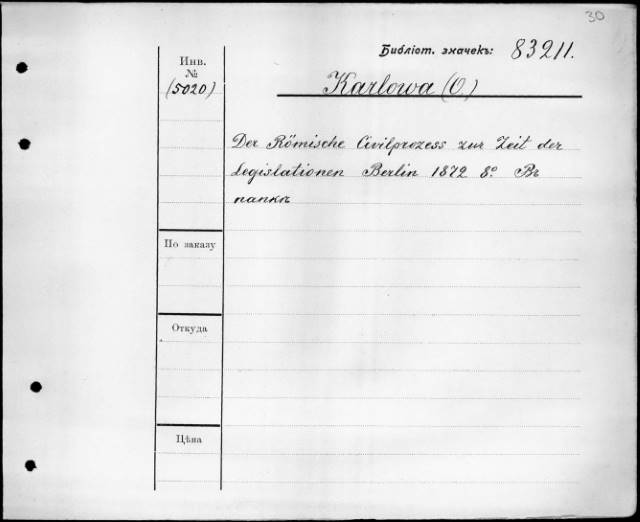 30
Библіот. значекъ: 83211.
Инв.
№
(5020)
Karlowa (O.)
Der Römische Civilprozess zur Zeit der
Legislationen Berlin 1872 8º Въ
папкѣ
По заказу
Откуда
Цѣна